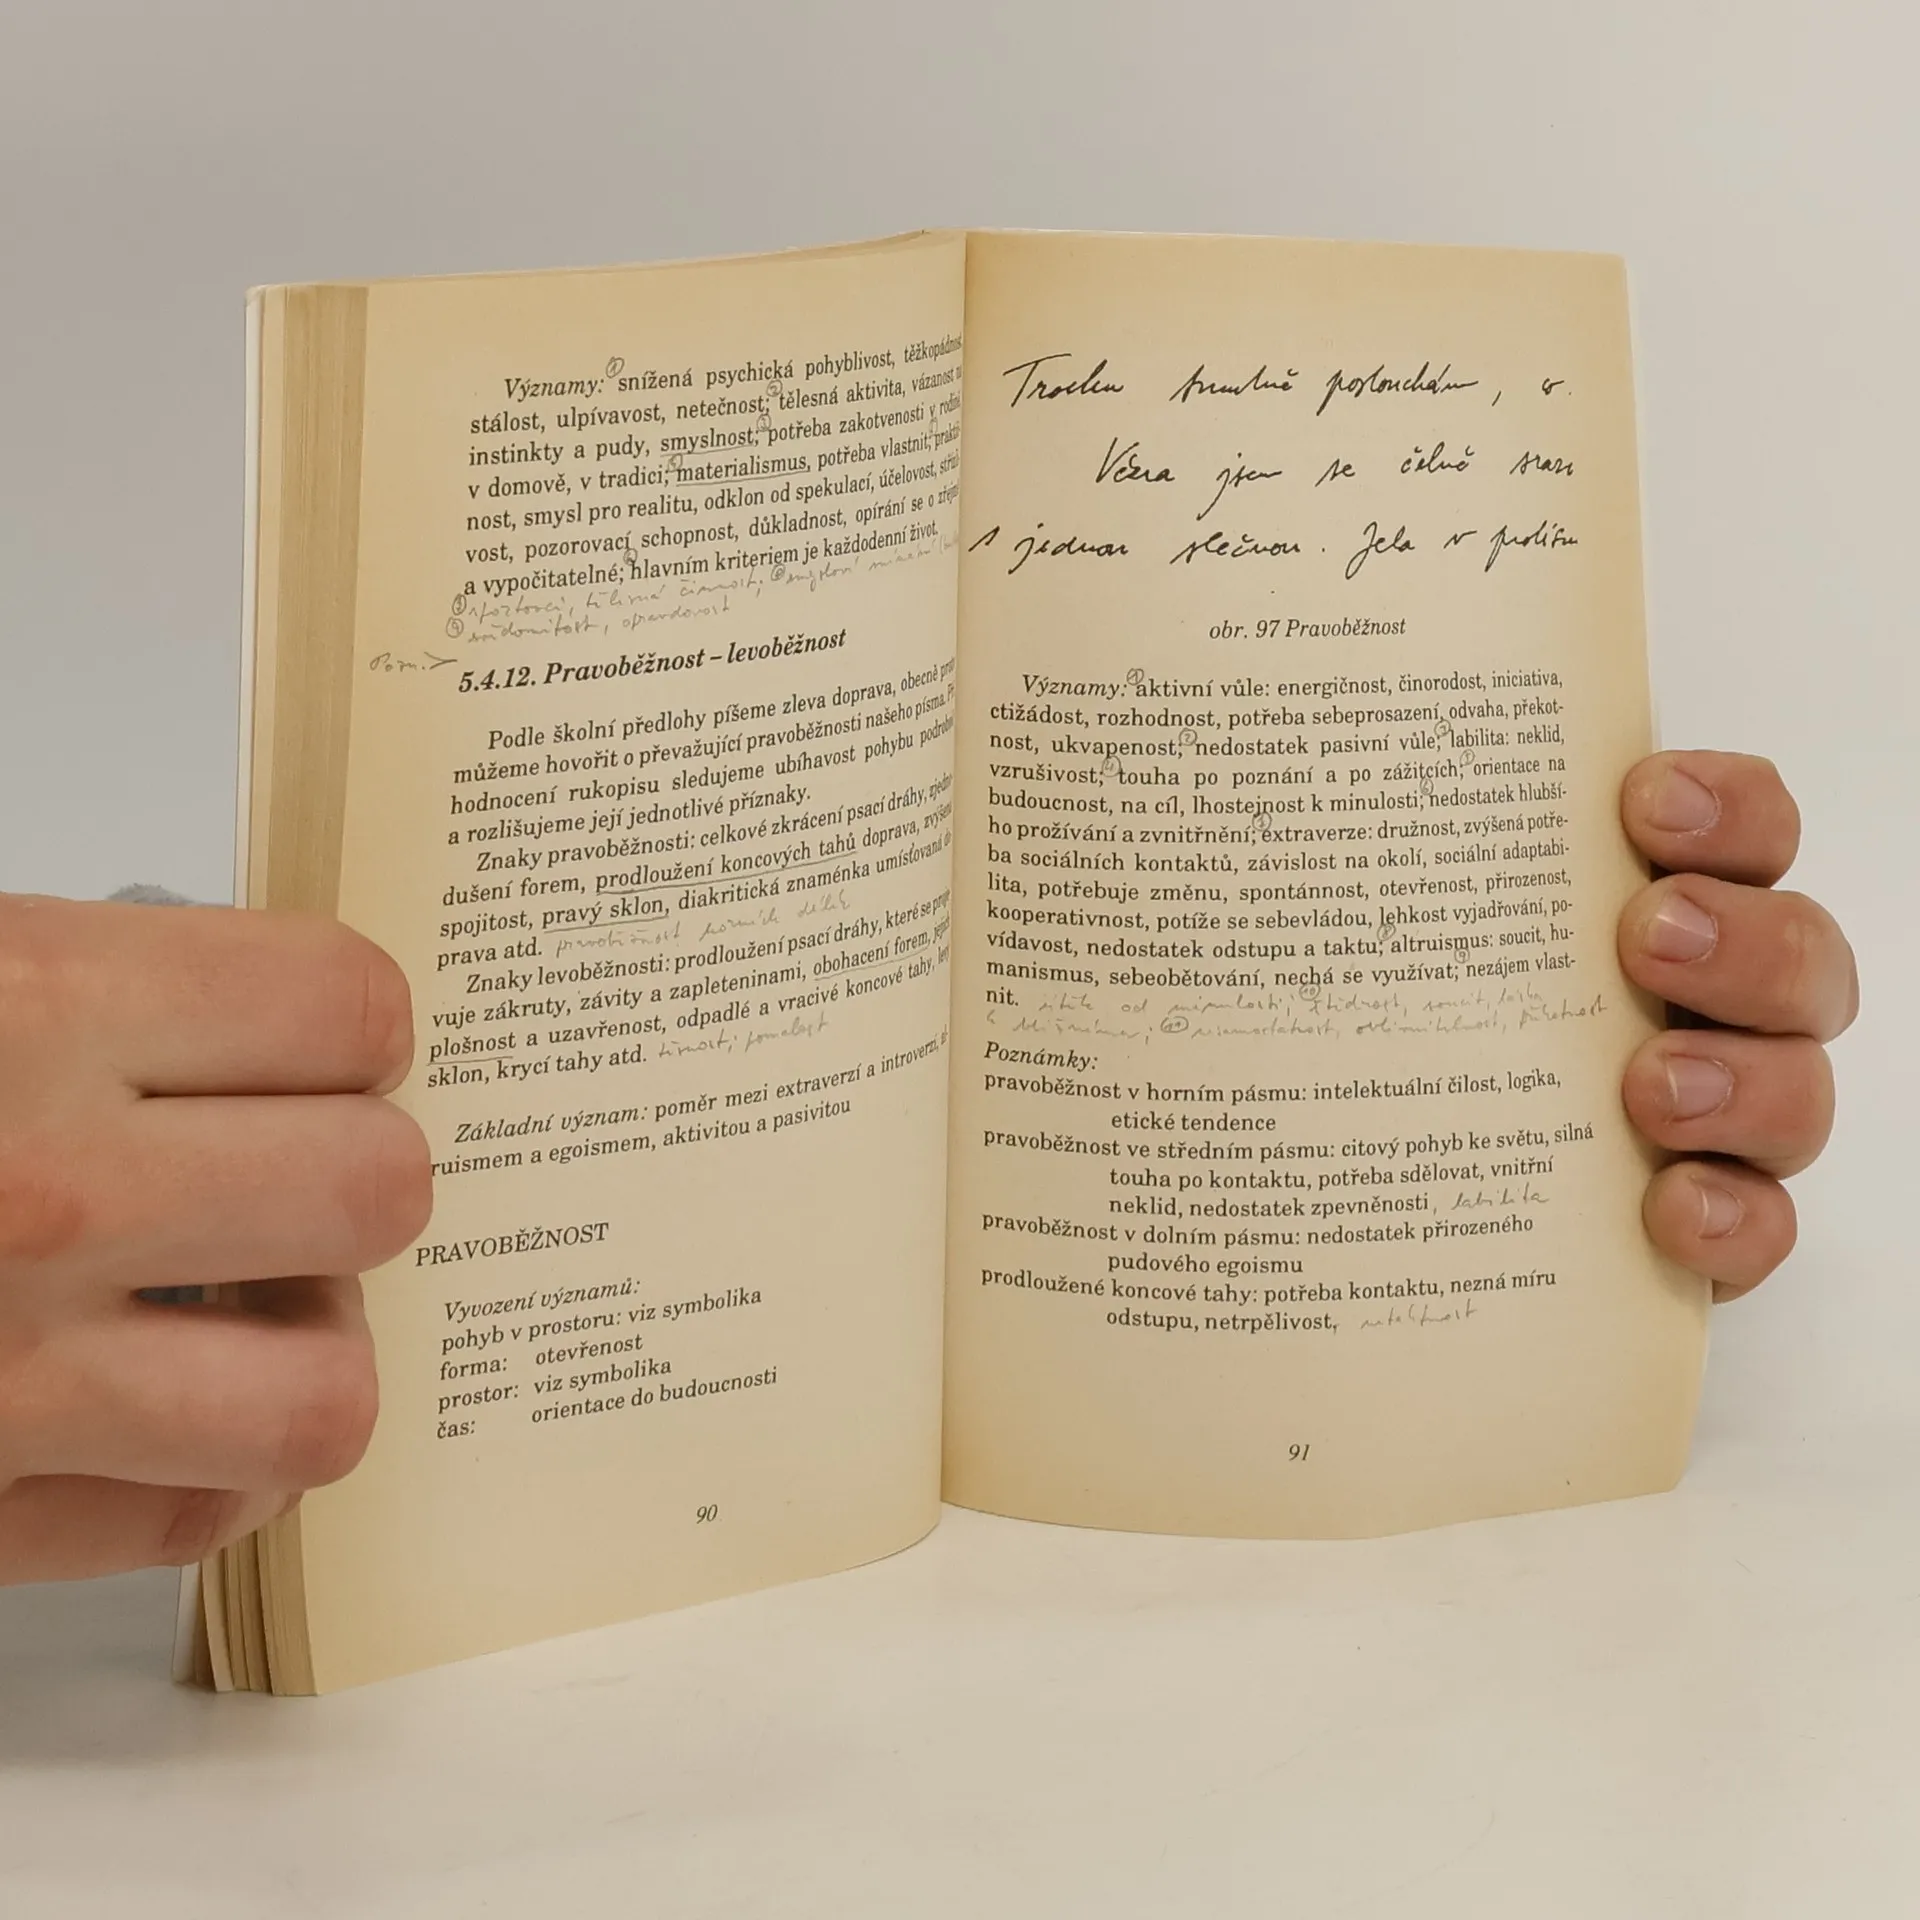 Významy: snížená psychická pohyblivost, těžkopádnost
stálost, ulpívavost, netečnost; tělesná aktivita, vázanost
instinkty a pudy, smyslnost; potřeba zakotvenosti v rodině
v domově, v tradici; materialismus, potřeba vlastnit; prakti
nost, smysl pro realitu, odklon od spekulací, účelovost, stříz
vost, pozorovací schopnost, důkladnost, opírání se o zřejmé
a vypočitatelné; hlavním kriteriem je každodenní život.
③ sportovci, tělesná činnost;
④ opravdovost
Pozn. >
5.4.12. Pravoběžnost – levoběžnost
Podle školní předlohy píšeme zleva doprava, obecně proto
můžeme hovořit o převažující pravoběžnosti našeho písma. Př
hodnocení rukopisu sledujeme ubíhavost pohybu podrobně
a rozlišujeme její jednotlivé příznaky.
Znaky pravoběžnosti: celkové zkrácení psací dráhy, zjedno-
dušení forem, prodloužení koncových tahů doprava, zvýšená
spojitost, pravý sklon, diakritická znaménka umísťovaná do
prava atd. pravoběžnost horních délek
Znaky levoběžnosti: prodloužení psací dráhy, které se proje
vuje zákruty, závity a zapleteninami, obohacení forem, jejich
plošnost a uzavřenost, odpadlé a vracivé koncové tahy, levý
sklon, krycí tahy atd. těsnost; pomalost
Základní význam: poměr mezi extraverzí a introverzí, al-
truismem a egoismem, aktivitou a pasivitou
PRAVOBĚŽNOST
Vyvození významů:
pohyb v prostoru: viz symbolika
forma: otevřenost
prostor: viz symbolika
čas: orientace do budoucnosti
90
Trochu smutně poslouchám,
Včera jsem se čelně sraz
s jednou slečnou. Jela v protism
obr. 97 Pravoběžnost
Významy: ① aktivní vůle: energičnost, činorodost, iniciativa,
ctižádost, rozhodnost, potřeba sebeprosazení, odvaha, překot-
nost, ukvapenost; ② nedostatek pasivní vůle; ③ labilita: neklid,
vzrušivost; ④ touha po poznání a po zážitcích; orientace na
budoucnost, na cíl, lhostejnost k minulosti; nedostatek hlubší-
ho prožívání a zvnitřnění; extraverze: družnost, zvýšená potře-
ba sociálních kontaktů, závislost na okolí, sociální adaptabi-
lita, potřebuje změnu, spontánnost, otevřenost, přirozenost,
kooperativnost, potíže se sebevládou, lehkost vyjadřování, po-
vídavost, nedostatek odstupu a taktu; ⑧ altruismus: soucit, hu-
manismus, sebeobětování, nechá se využívat; ⑨ nezájem vlast-
nit. útěk od minulosti; ⑩ štědrost, soucit, láska
k bližnímu; ⑪ nesamostatnost, ovlivnitelnost,
Poznámky:
pravoběžnost v horním pásmu: intelektuální čilost, logika,
etické tendence
pravoběžnost ve středním pásmu: citový pohyb ke světu, silná
touha po kontaktu, potřeba sdělovat, vnitřní
neklid, nedostatek zpevněnosti, labilita
pravoběžnost v dolním pásmu: nedostatek přirozeného
pudového egoismu
prodloužené koncové tahy: potřeba kontaktu, nezná míru
odstupu, netrpělivost,
91